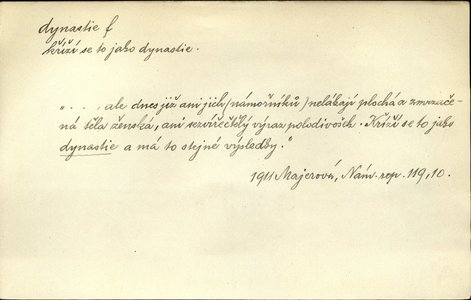 dynastie f
kříží se to jako dynastie.
„. . ., ale dnes již ani jich /námořníků/ nelákají plochá a zmrzače-
ná těla ženská, ani sezvířečtělý výraz polodivoch. Kříží se to jako
dynastie a má to stejné výsledky."
1911 Majerová, Nám. rep. 119, 10.